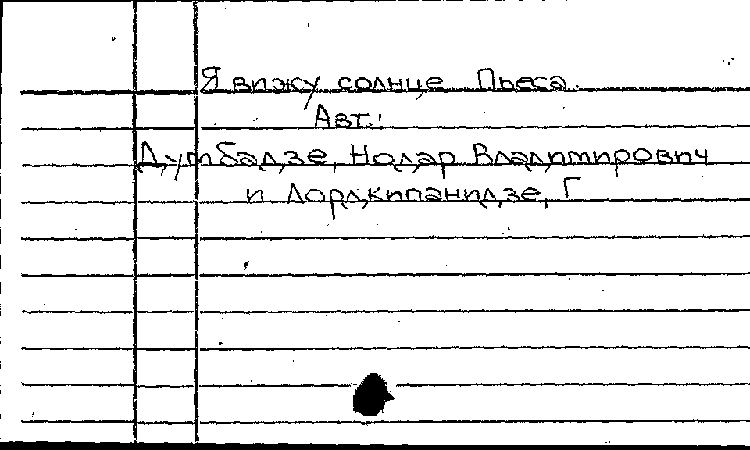 Я вижу солнце Пьеса.
Авт.:
Думбадзе, Нодар Владимирович
и Лордкипанидзе, Г